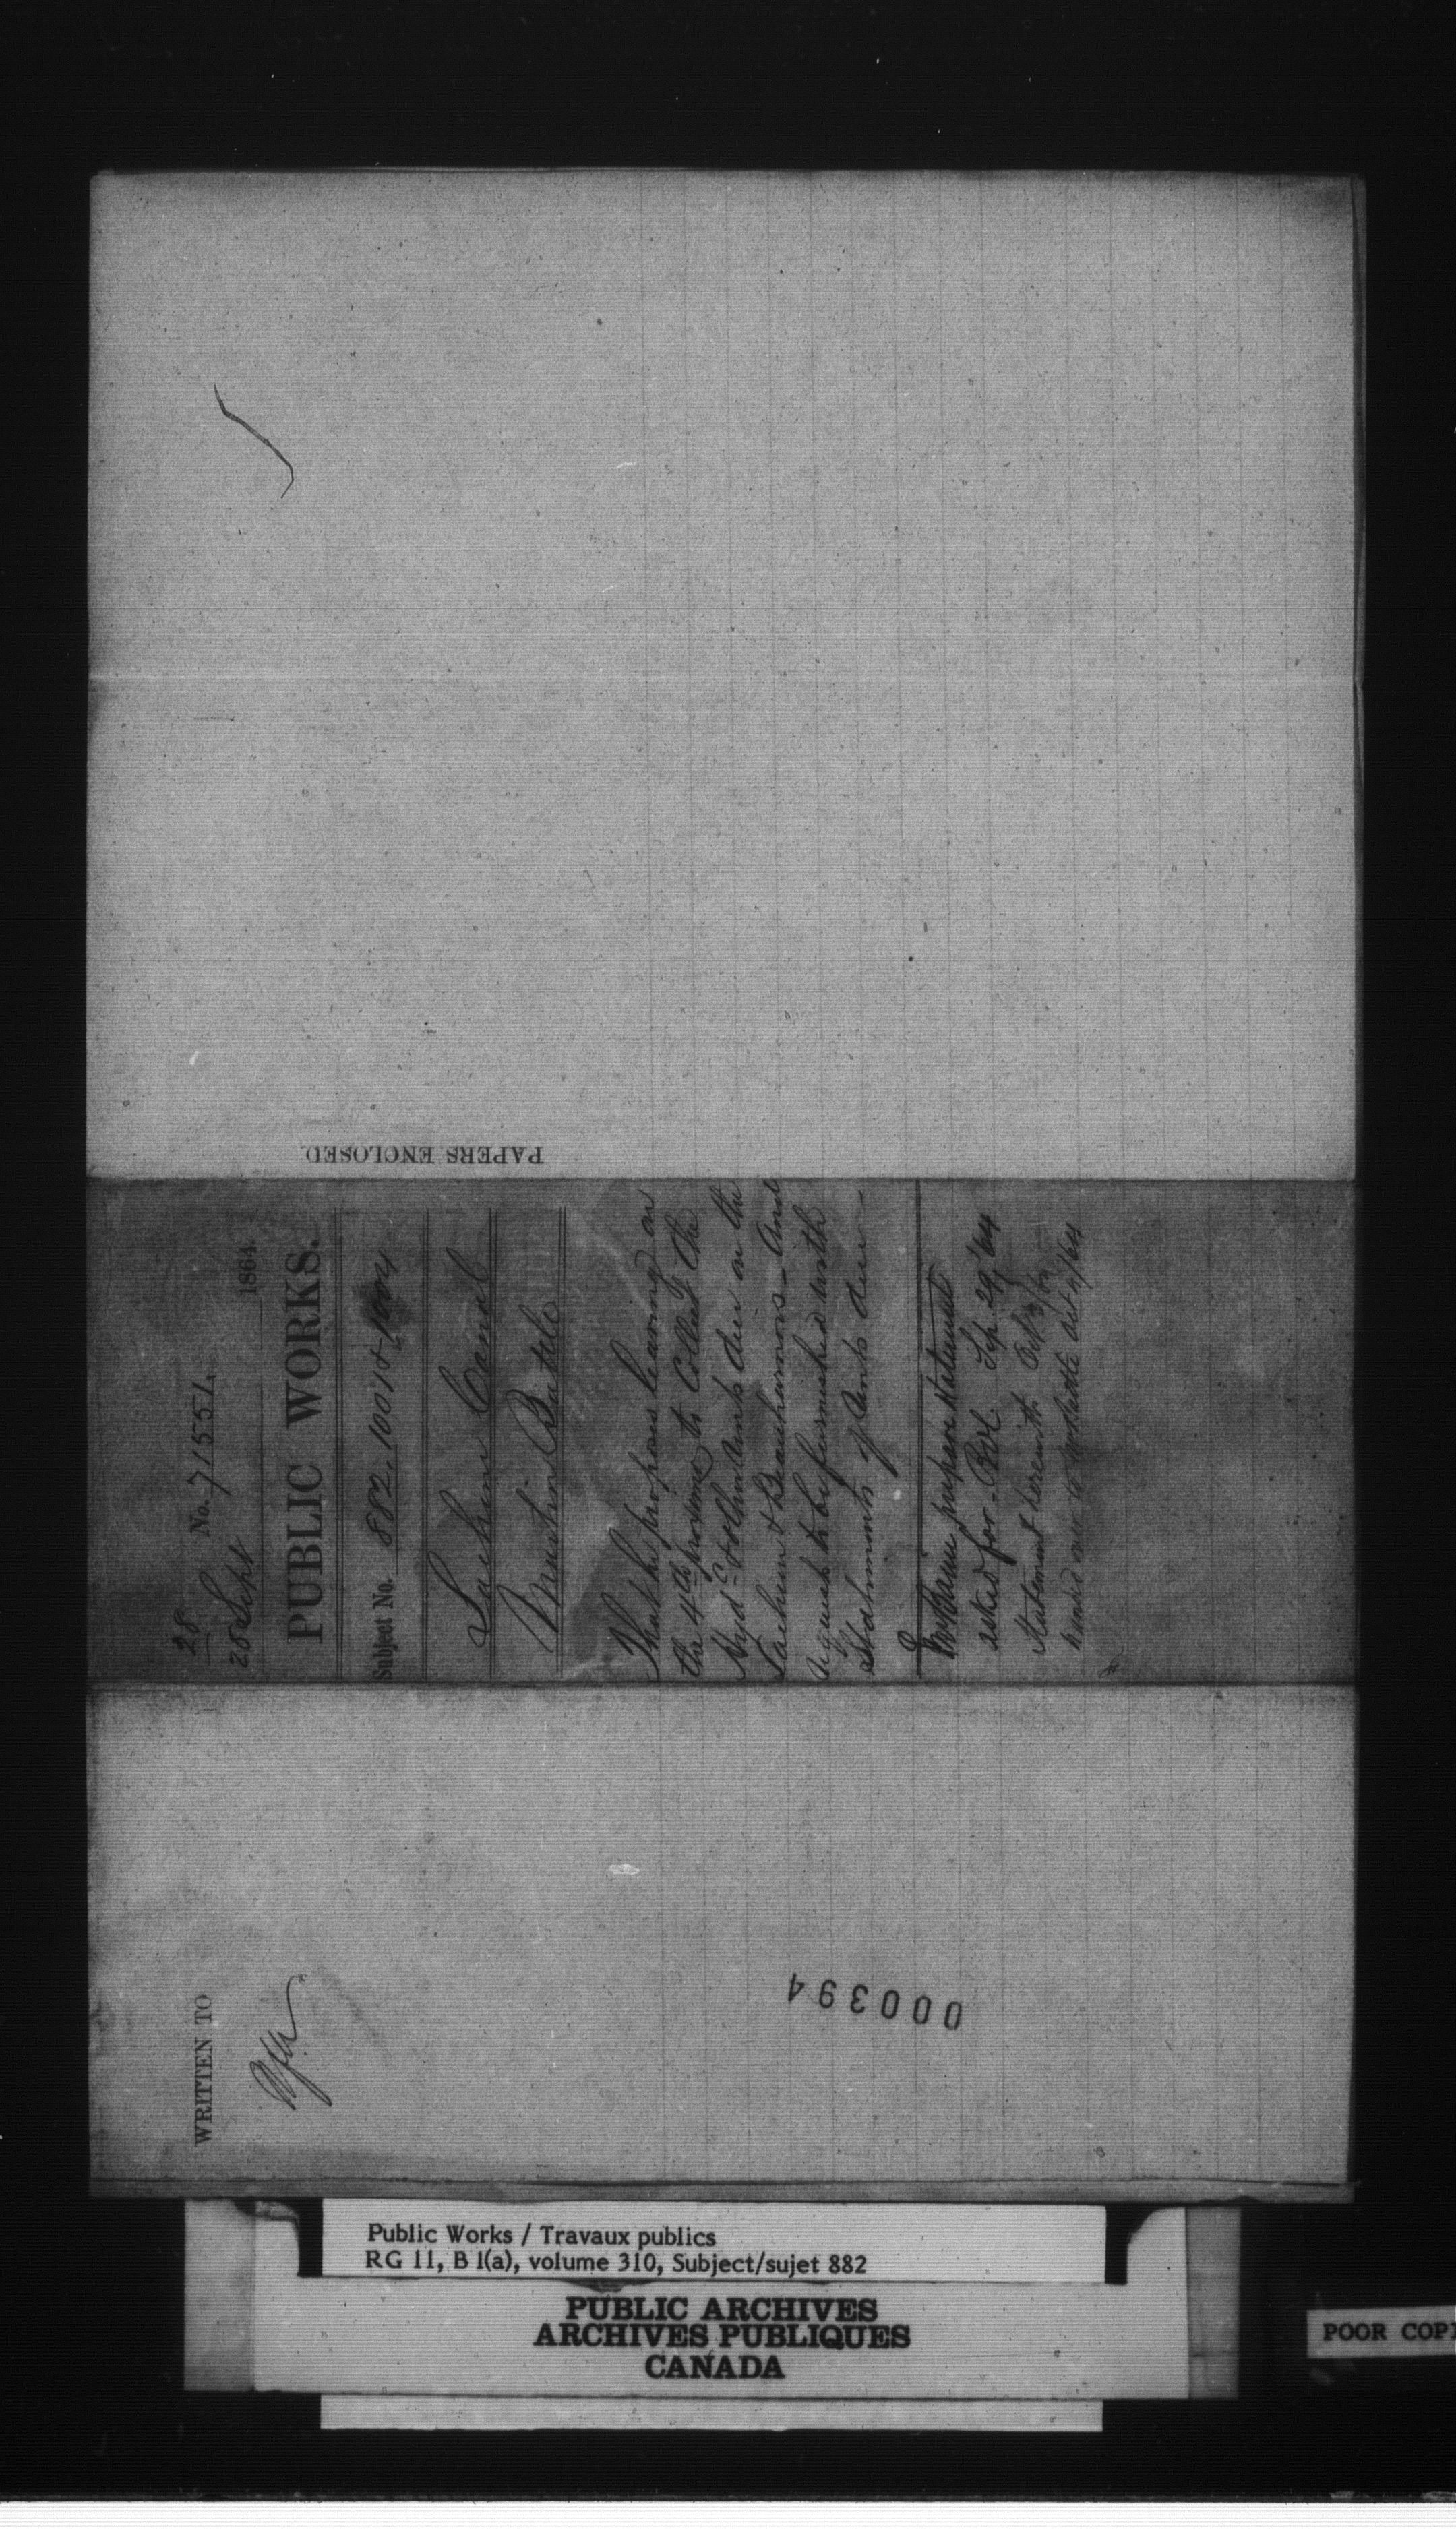 PAPERS ENCLOSED.
28
No. 71551.
28 Sept 1864
PUBLIC WORKS.
Subject No. 882. 1001 & 1004
Lachine Canal
Martin Battle
That he proposes leaving on
the 4th proximo to Collect the
Hyd. & other rents due on the
Lachine & Beauharnois - And
requests to be furnished with
Statements of rents due -
prepare statement
asked for - Sep. 29/64
Statement herewith Oct 3/64
handed over to Mr Battle Oct 4/64
WRITTEN TO
000394
Public Works / Travaux publics
RG 11, B 1(a), volume 310, Subject/sujet 882
PUBLIC ARCHIVES
ARCHIVES PUBLIQUES
CANADA
POOR COPY